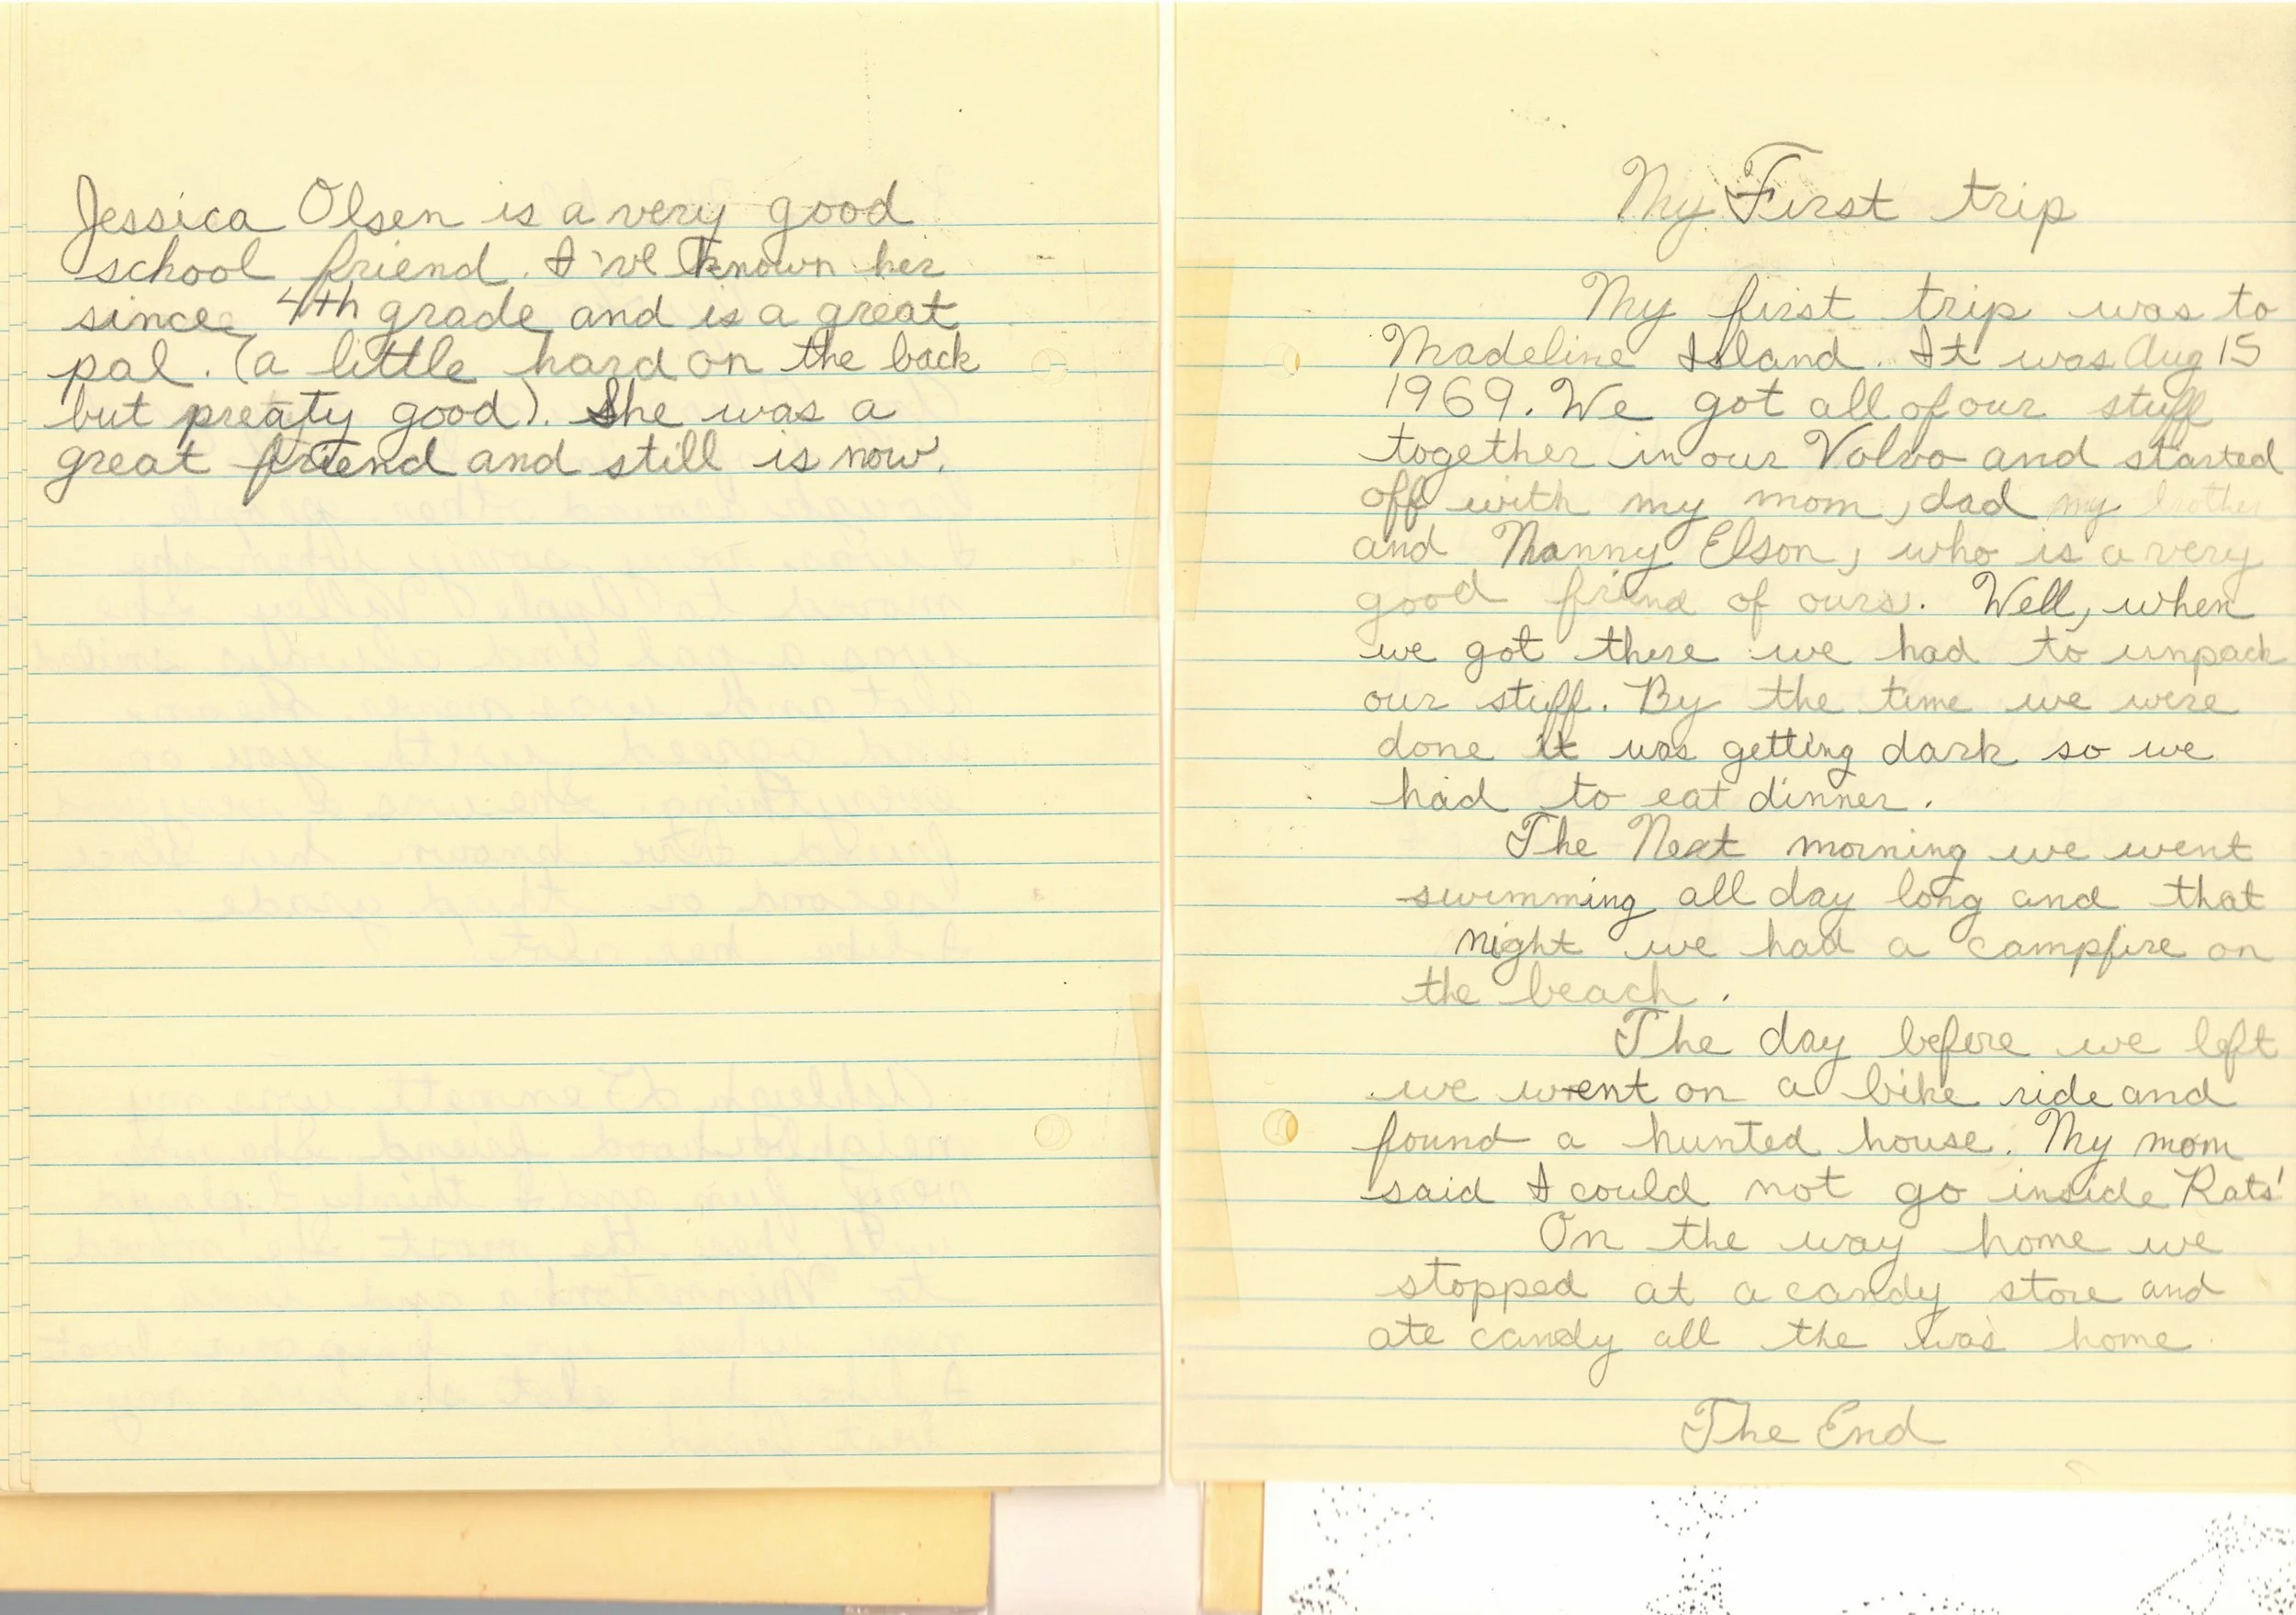 Jessica Olsen is a very good
school friend. I've known her
since 4th grade and is a great
pal. (a little hard on the back
but preaty good). She was a
great friend and still is now.
My First trip
My first trip was to
Madeline Island. It was Aug 15
1969. We got all of our stuff
together in our Volvo and started
off with my mom, dad my
and Nanny Elson, who is a very
good friend of ours. Well, when
we got there we had to unpack
our stuff. By the time we were
done it was getting dark so we
had to eat dinner.
The Next morning we went
swimming all day long and that
night we had a campfire on
the beach.
The day before we left
we went on a bike ride and
found a hunted house. My mom
said I could not go inside Rats!
On the way home we
stopped at a candy store and
ate candy all the was home
The End